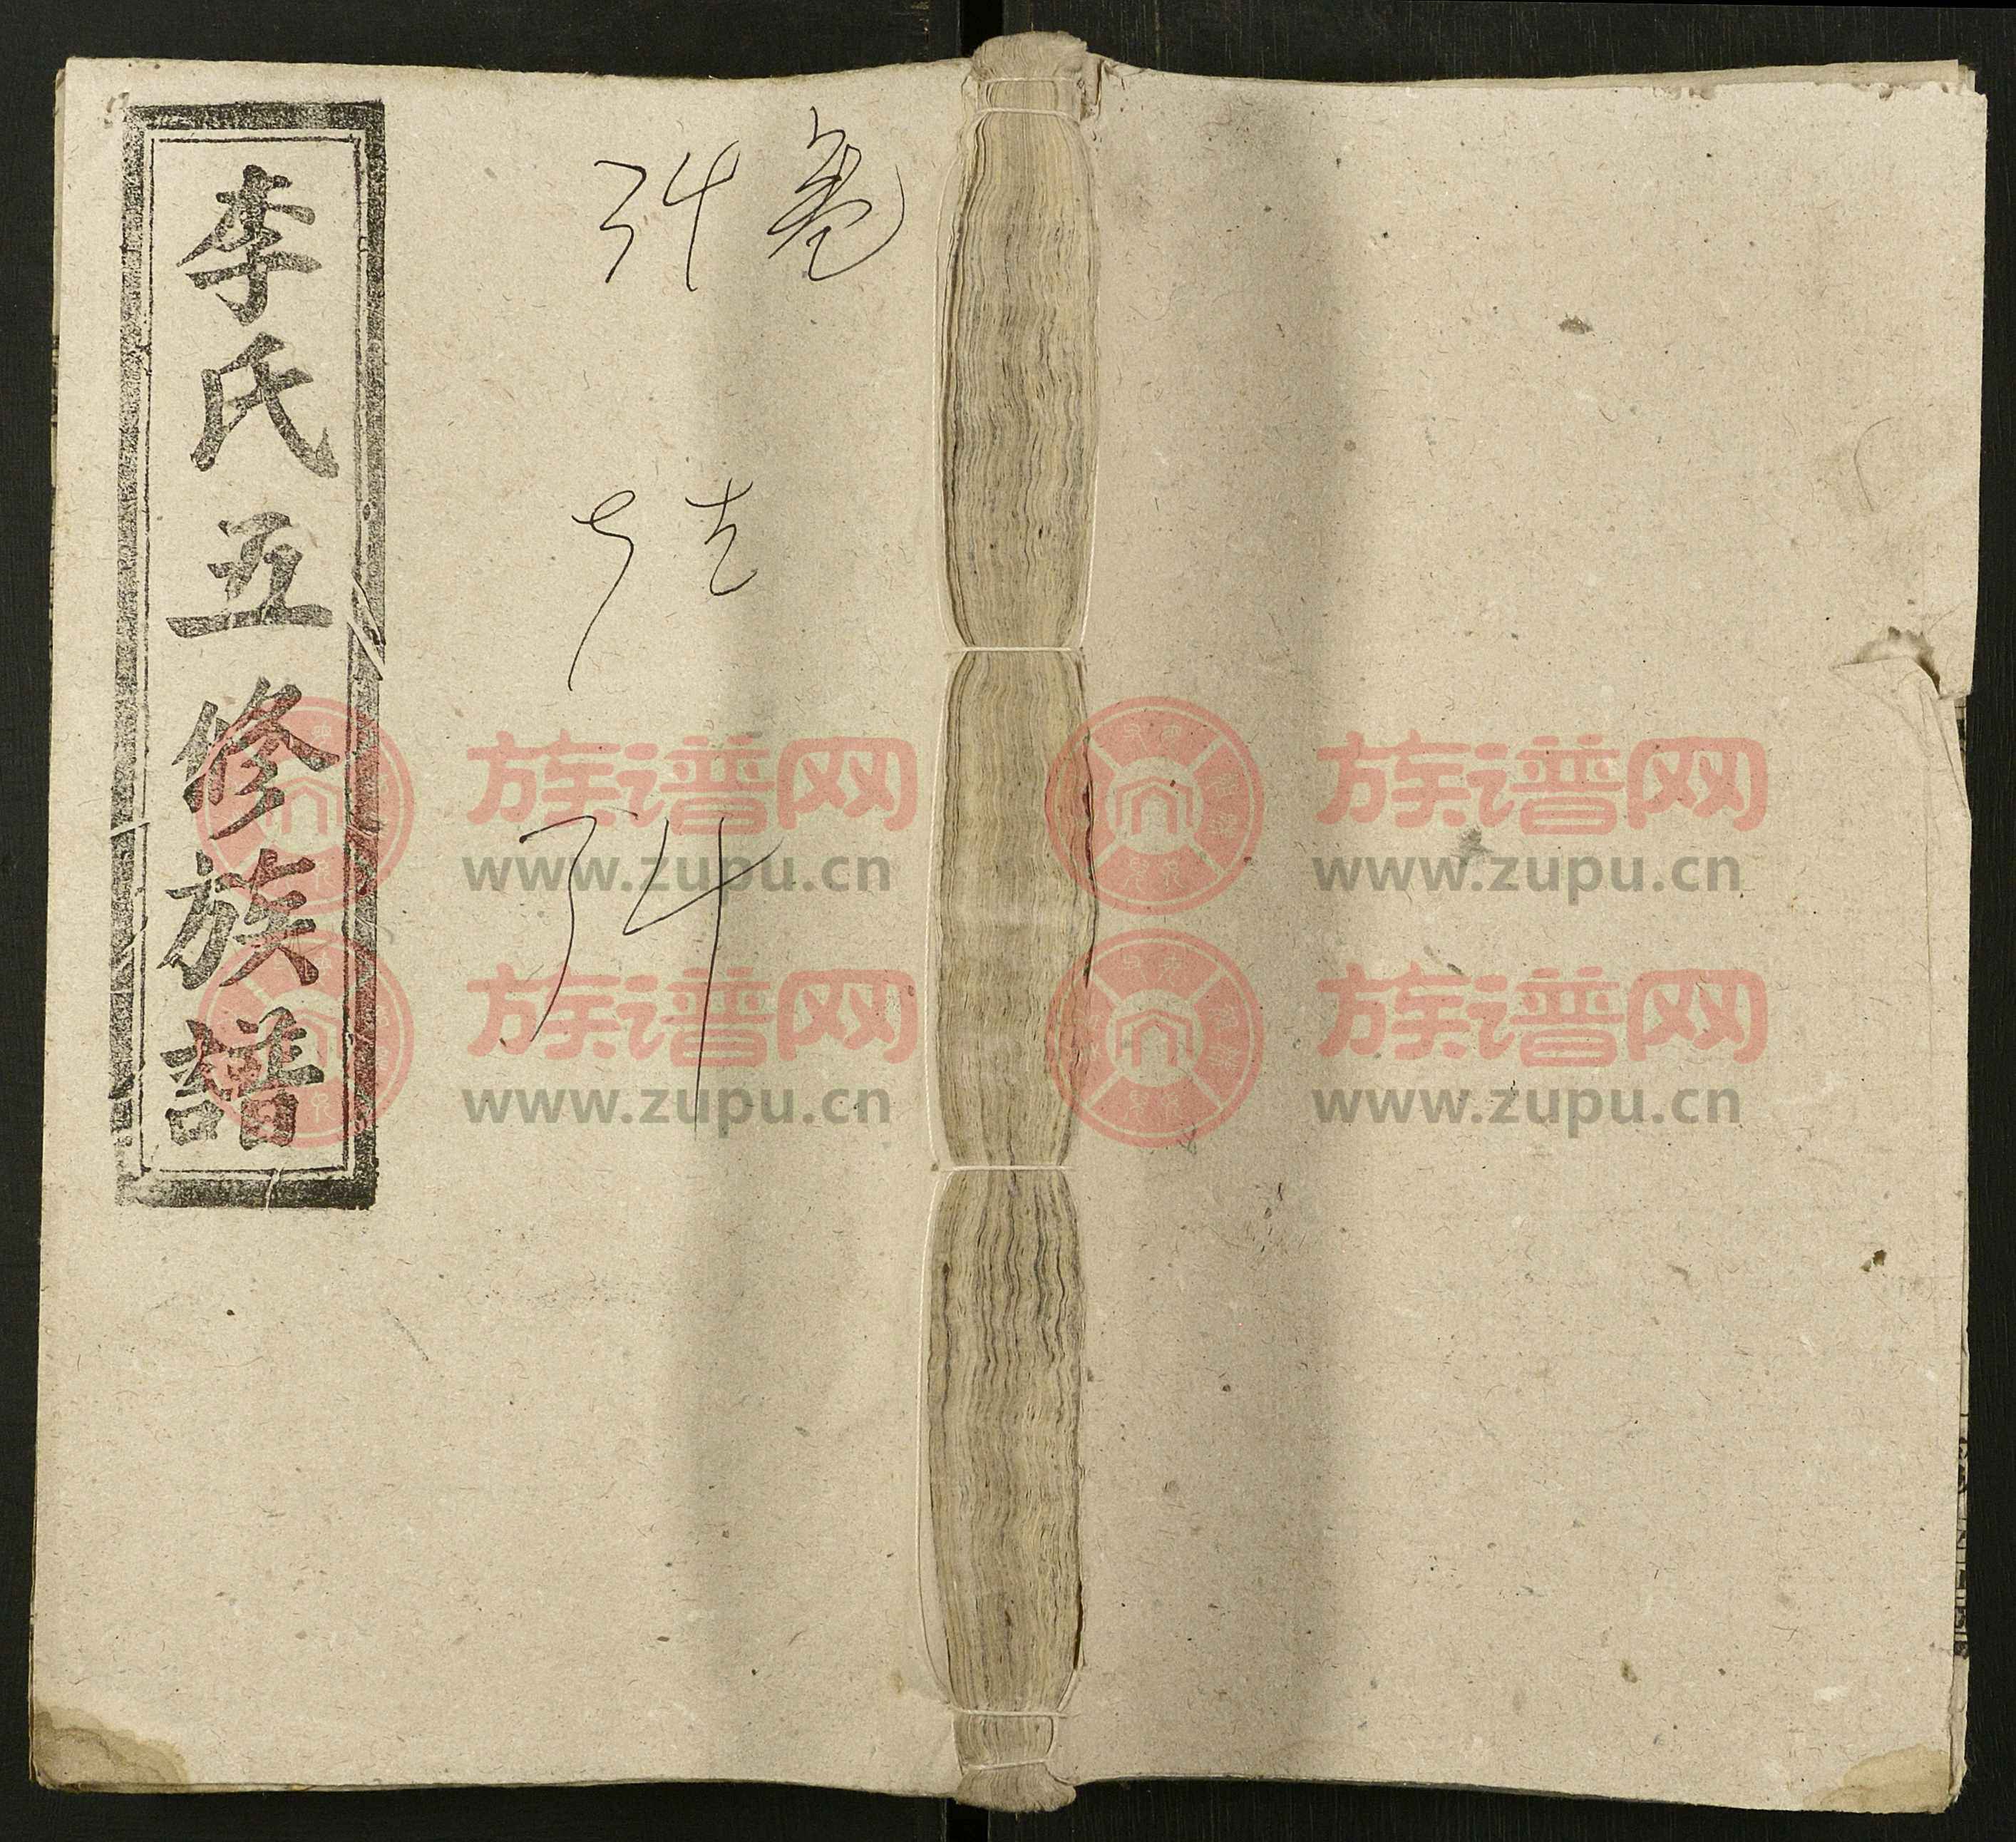 李氏五修族譜
34卷
34
族谱网 族谱网
www.zupu.cn www.zupu.cn
族谱网 族谱网
www.zupu.cn www.zupu.cn